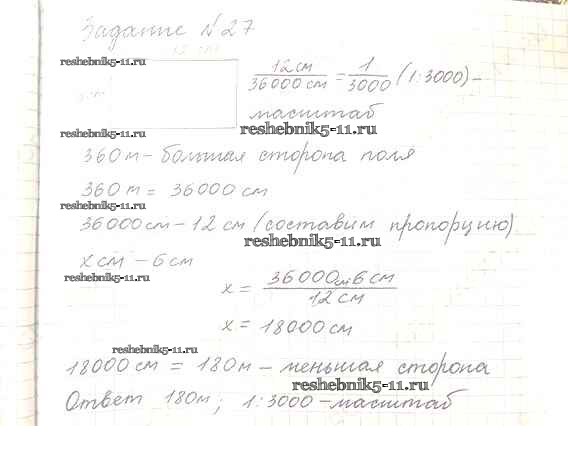 Задание №27
12 см
reshebnik5-11.ru
12 см / 36000 см = 1 / 3000 (1:3000) –
масштаб
reshebnik5-11.ru
reshebnik5-11.ru
360 м – большая сторона поля
360 м = 36000 см
reshebnik5-11.ru
36000 см – 12 см (составим пропорцию)
reshebnik5-11.ru
x см – 6 см
reshebnik5-11.ru
x = 36000 см · 6 см / 12 см
x = 18000 см
reshebnik5-11.ru
18000 см = 180 м – меньшая сторона
reshebnik5-11.ru
Ответ 180 м; 1:3000 – масштаб